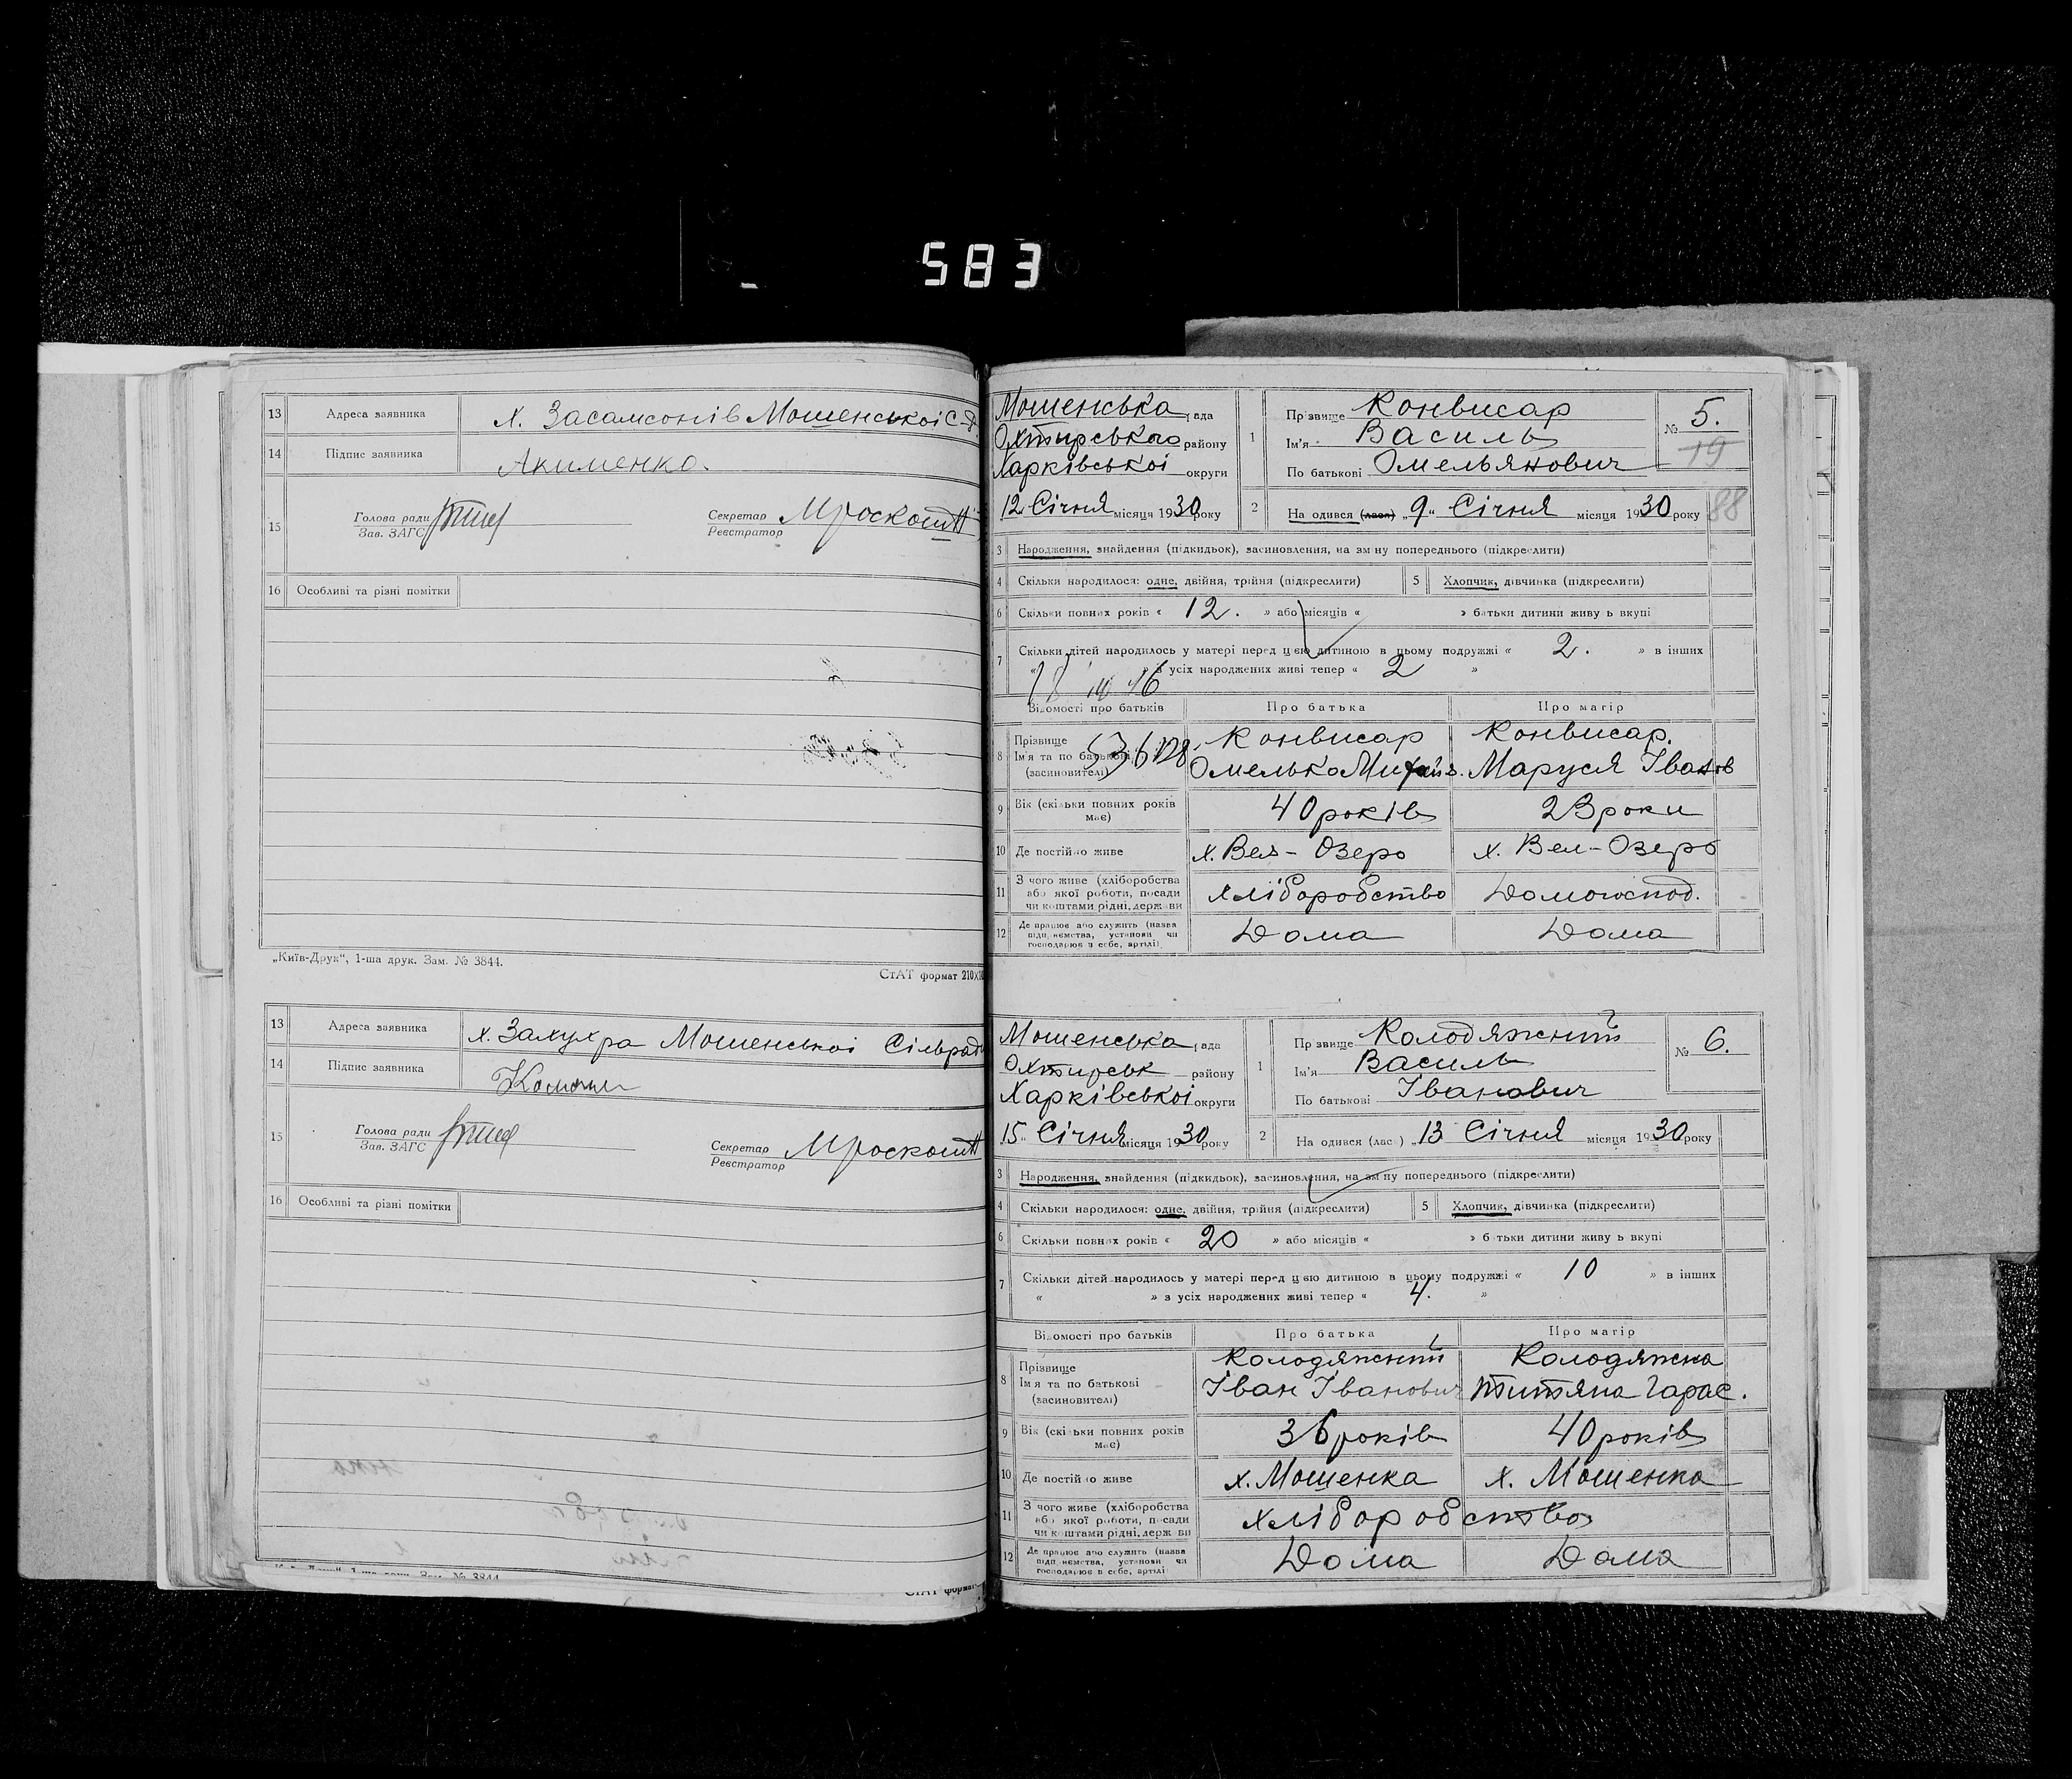 583
13 Адреса заявника х. Засамсонів Мошенської С-р.
14 Підпис заявника Акименко.
15 Голова ради
Зав. ЗАГС
Секретар
Реєстратор
16 Особливі та різні помітки
„Київ-Друк“, 1-ша друк. Зам. № 3844.
СтАТ формат 210×
13 Адреса заявника х. Мошенської Сільради
14 Підпис заявника
15 Голова ради
Зав. ЗАГС
Секретар
Реєстратор
16 Особливі та різні помітки
1-ша друк. Зам. № 3844
СтАТ формат
Мошенська рада
Охтирського району
Харківської округи
12 Січня місяця 1930 року
1 Прізвище Конвисар
Ім'я Василь
По батькові Омельянович
№ 5.
19
2 Народився (лася) „9“ Січня місяця 1930 року
88
3 Народження, знайдення (підкидьок), засиновлення, на зміну попереднього (підкреслити)
4 Скільки народилося: одне, двійня, трійня (підкреслити) 5 Хлопчик, дівчинка (підкреслити)
6 Скільки повних років « 12. » або місяців « » батьки дитини живуть вкупі
7 Скільки дітей народилось у матері перед цією дитиною в цьому подружжі « 2. » в інших
« » з усіх народжених живі тепер « 2 »
Відомості про батьків Про батька Про матір
8 Прізвище Конвисар Конвисар.
Ім'я та по батькові Омелько Михайл. Маруся Іванов
(засиновителі)
9 Вік (скільки повних років має) 40 років 23 роки
10 Де постійно живе х. Вел-Озеро х. Вел-Озеро
11 З чого живе (хліборобства або якої роботи, посади чи коштами рідні, держави хліборобство Домогоспод.
12 Де працює або служить (назва підприємства, установи чи господарює в себе, артілі) Дома Дома
Мошенська рада
Охтирськ району
Харківської округи
15 Січня місяця 1930 року
1 Прізвище Колодяжний
Ім'я Василь
По батькові Іванович
№ 6.
2 Народився (лася) „13 Січня місяця 1930 року
3 Народження, знайдення (підкидьок), засиновлення, на зміну попереднього (підкреслити)
4 Скільки народилося: одне, двійня, трійня (підкреслити) 5 Хлопчик, дівчинка (підкреслити)
6 Скільки повних років « 20 » або місяців « » батьки дитини живуть вкупі
7 Скільки дітей народилось у матері перед цією дитиною в цьому подружжі « 10 » в інших
« » з усіх народжених живі тепер « 4. »
Відомості про батьків Про батька Про матір
8 Прізвище Колодяжний Колодяжна
Ім'я та по батькові Іван Іванович Титяна Гарас.
(засиновителі)
9 Вік (скільки повних років має) 36 років 40 років
10 Де постійно живе х. Мошенка х. Мошенка
11 З чого живе (хліборобства або якої роботи, посади чи коштами рідні, держави хліборобство
12 Де працює або служить (назва підприємства, установи чи господарює в себе, артілі) Дома Дома